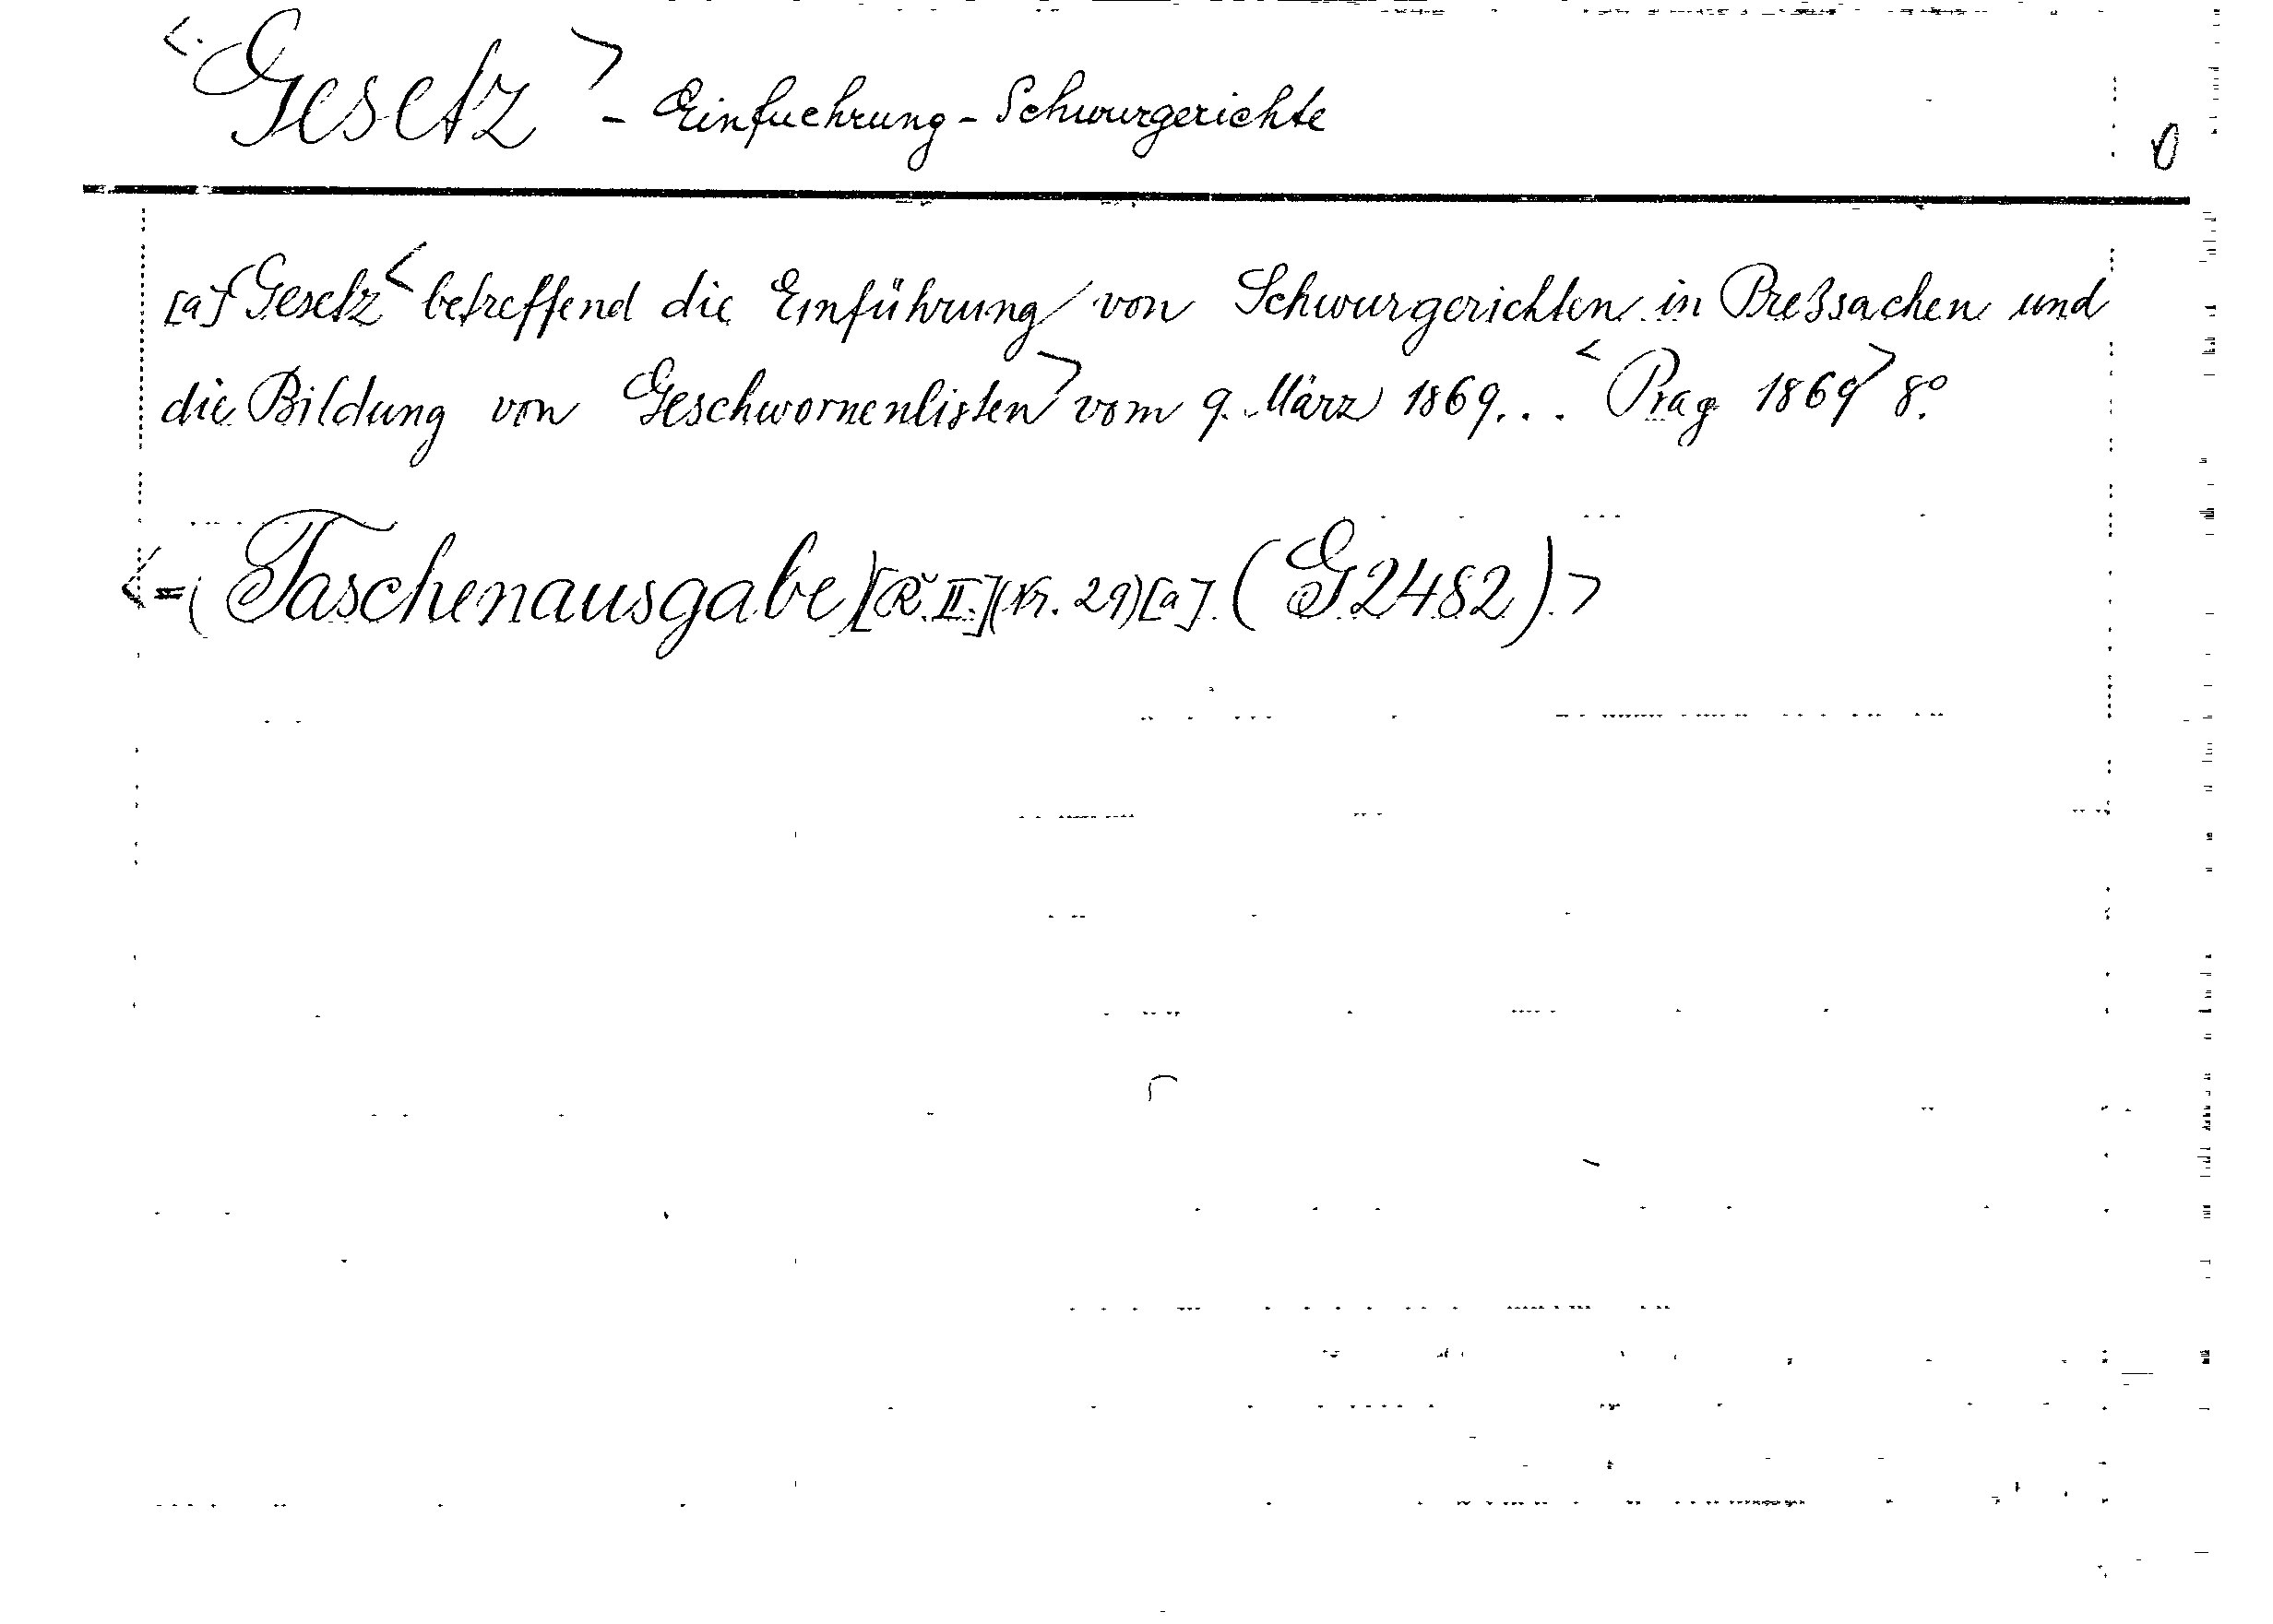 <Gesetz> - Einfuehrung - Schwurgerichte
[a] Gesetz < betreffend die Einführung von Schwurgerichten in Preßsachen und
die Bildung von Geschwornenlisten> vom 9. März 1869... <Prag 1869> 8º.
<=(Taschenausgabe)[R. II.](Nr. 29)[a]. (G 2482).>